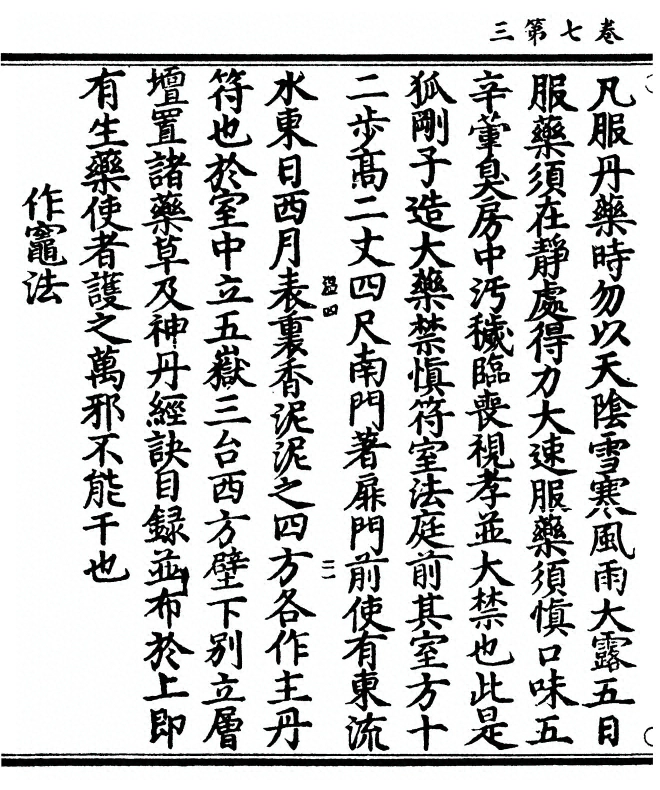 三第七卷
凡服丹藥時勿以天陰雪寒風雨大露五日
服藥須在靜處得力大速服藥須慎口味五
辛葷臭房中汚穢臨喪視孝並大禁也此是
狐剛子造大藥禁慎符室法庭前其室方十
二步高二丈四尺南門著扉門前使有東流
水東日西月表裏香泥泥之四方各作主丹
符也於室中立五嶽三台西方壁下別立層
壇置諸藥草及神丹經訣目録並布於上即
有生藥使者護之萬邪不能干也
作竈法